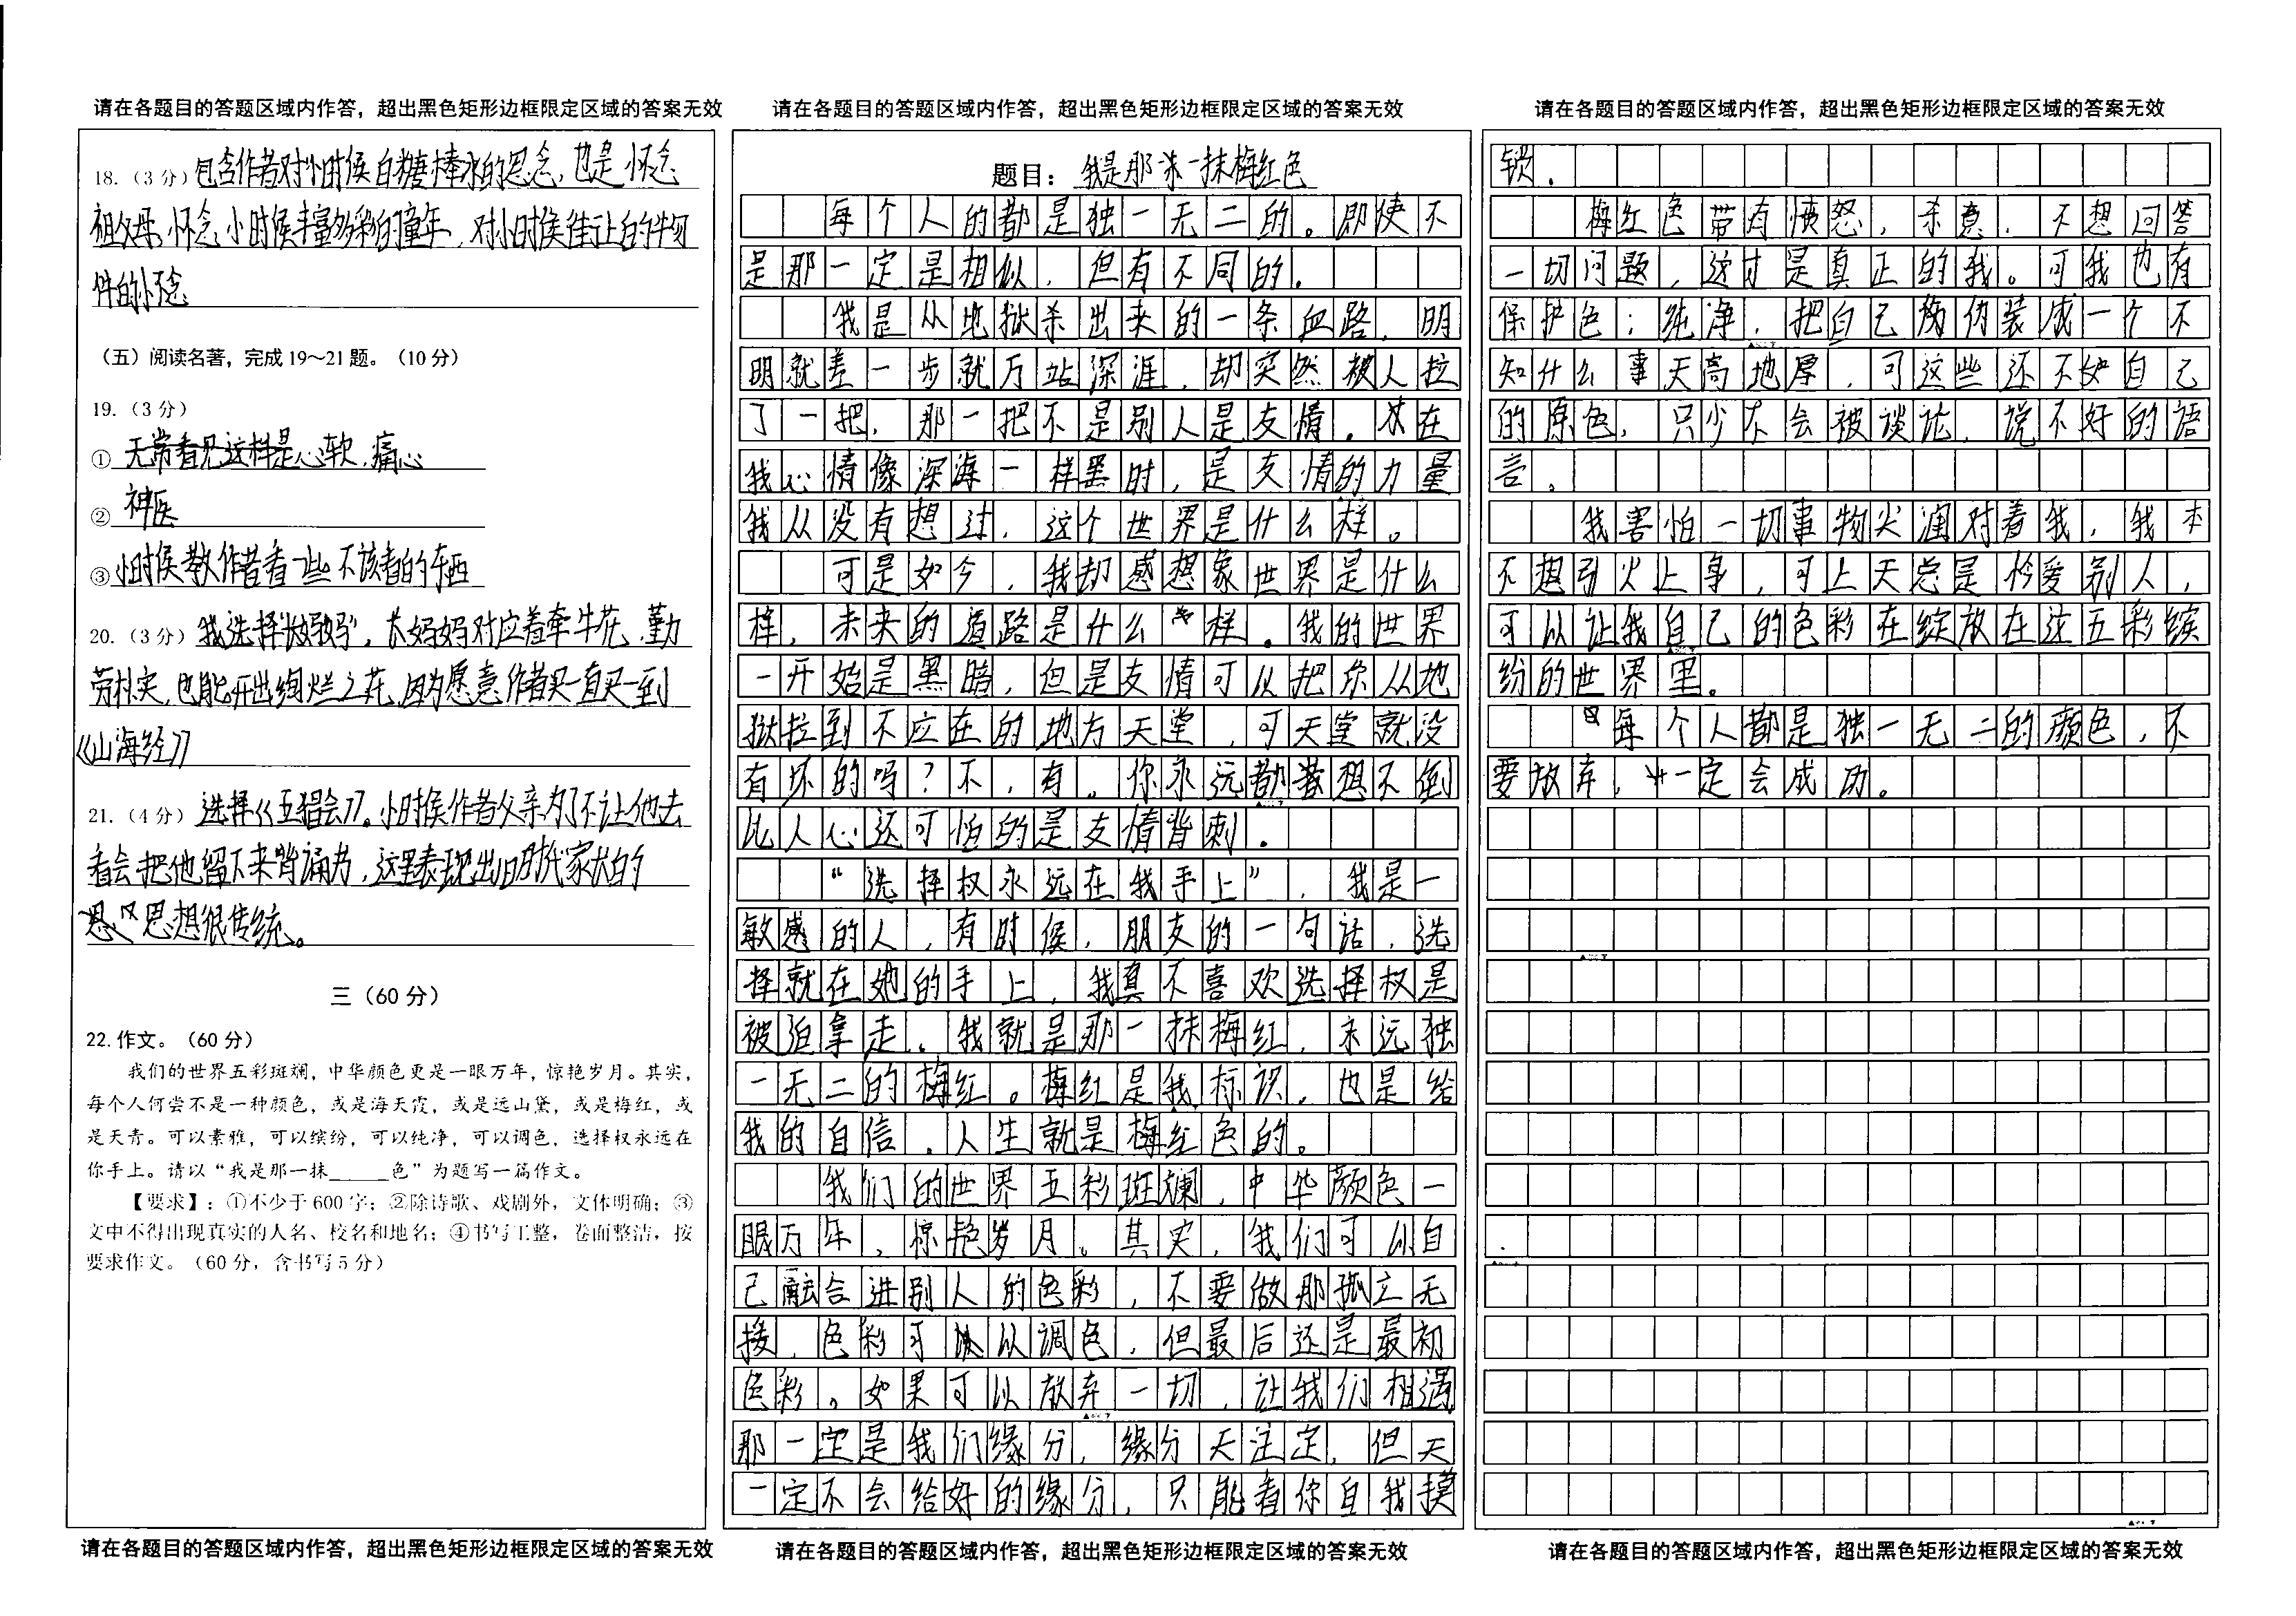 请在各题目的答题区域内作答，超出黑色矩形边框限定区域的答案无效
18.（3分）包含作者对小时候白糖棒冰的思念，也是怀念
祖父母，怀念小时候丰富多彩的童年，对小时候街上的物
件的怀念
（五）阅读名著，完成19～21题。（10分）
19.（3分）
① 无常看见这样是心软，痛心
② 神医
③ 小时侯教作者看一些不该看的东西
20.（3分）我选择"长妈妈"，长妈妈对应着牵牛花，勤
劳朴实，也能开出绚烂之花，因为愿意作者买一直买一到
《山海经》
21.（4分）选择《五猖会》。小时侯作者父亲为了不让他去
看会把他留下来背诵为，这里表现出旧时代家长的
思想很传统。
三（60分）
22.作文。（60分）
我们的世界五彩斑斓，中华颜色更是一眼万年，惊艳岁月。其实，
每个人何尝不是一种颜色，或是海天霞，或是远山黛，或是梅红，或
是天青。可以素雅，可以缤纷，可以纯净，可以调色，选择权永远在
你手上。请以“我是那一抹______色”为题写一篇作文。
【要求】：①不少于600字；②除诗歌、戏剧外，文体明确；③
文中不得出现真实的人名、校名和地名；④书写工整，卷面整洁，按
要求作文。（60分，含书写5分）
请在各题目的答题区域内作答，超出黑色矩形边框限定区域的答案无效
请在各题目的答题区域内作答，超出黑色矩形边框限定区域的答案无效
题目：我是那一抹梅红色
每个人的都是独一无二的。即使不
是那一定是相似，但有不同的。
我是从地狱杀出来的一条血路，明
明就差一步就万站深涯，却突然被人拉
了一把，那一把不是别人是友情。在
我心情像深海一样黑时，是友情的力量
我从没有想过，这个世界是什么样。
可是如今，我却感想象世界是什么
样，未来的道路是什么样。我的世界
一开始是黑暗，但是友情可以把你从地
狱拉到不应在的地方天堂，可天堂就没
有坏的吗？不，有。你永远都想不倒
比人心还可怕的是友情背刺。
“选择权永远在我手上”，我是一
敏感的人，有时候，朋友的一句话，选
择就在她的手上，我真不喜欢选择权是
被迫拿走。我就是那一抹梅红，永远独
一无二的梅红。梅红是我标识，也是给
我的自信，人生就是梅红色的。
我们的世界五彩斑斓，中华颜色一
眼万年，惊艳岁月。其实，我们可以自
己融合进别人的色彩，不要做那孤立无
援，色彩可以调色，但最后还是最初
色彩。如果可以放弃一切，让我们相遇
那一定是我们缘分，缘分天注定，但天
一定不会给好的缘分，只能看你自我摸
请在各题目的答题区域内作答，超出黑色矩形边框限定区域的答案无效
请在各题目的答题区域内作答，超出黑色矩形边框限定区域的答案无效
锁。
梅红色带有愤怒，杀意，不想回答
一切问题，这才是真正的我。可我也有
保护色：纯净，把自己伪装成一个不
知什么事天高地厚，可这些还不如自己
的原色，只少不会被谈论，说不好的语
言。
我害怕一切事物尖锋对着我，我本
不想引火上身，可上天总是怜爱别人，
可以让我自己的色彩在绽放在这五彩缤
纷的世界里。
每个人都是独一无二的颜色，不
要放弃，一定会成功。
请在各题目的答题区域内作答，超出黑色矩形边框限定区域的答案无效